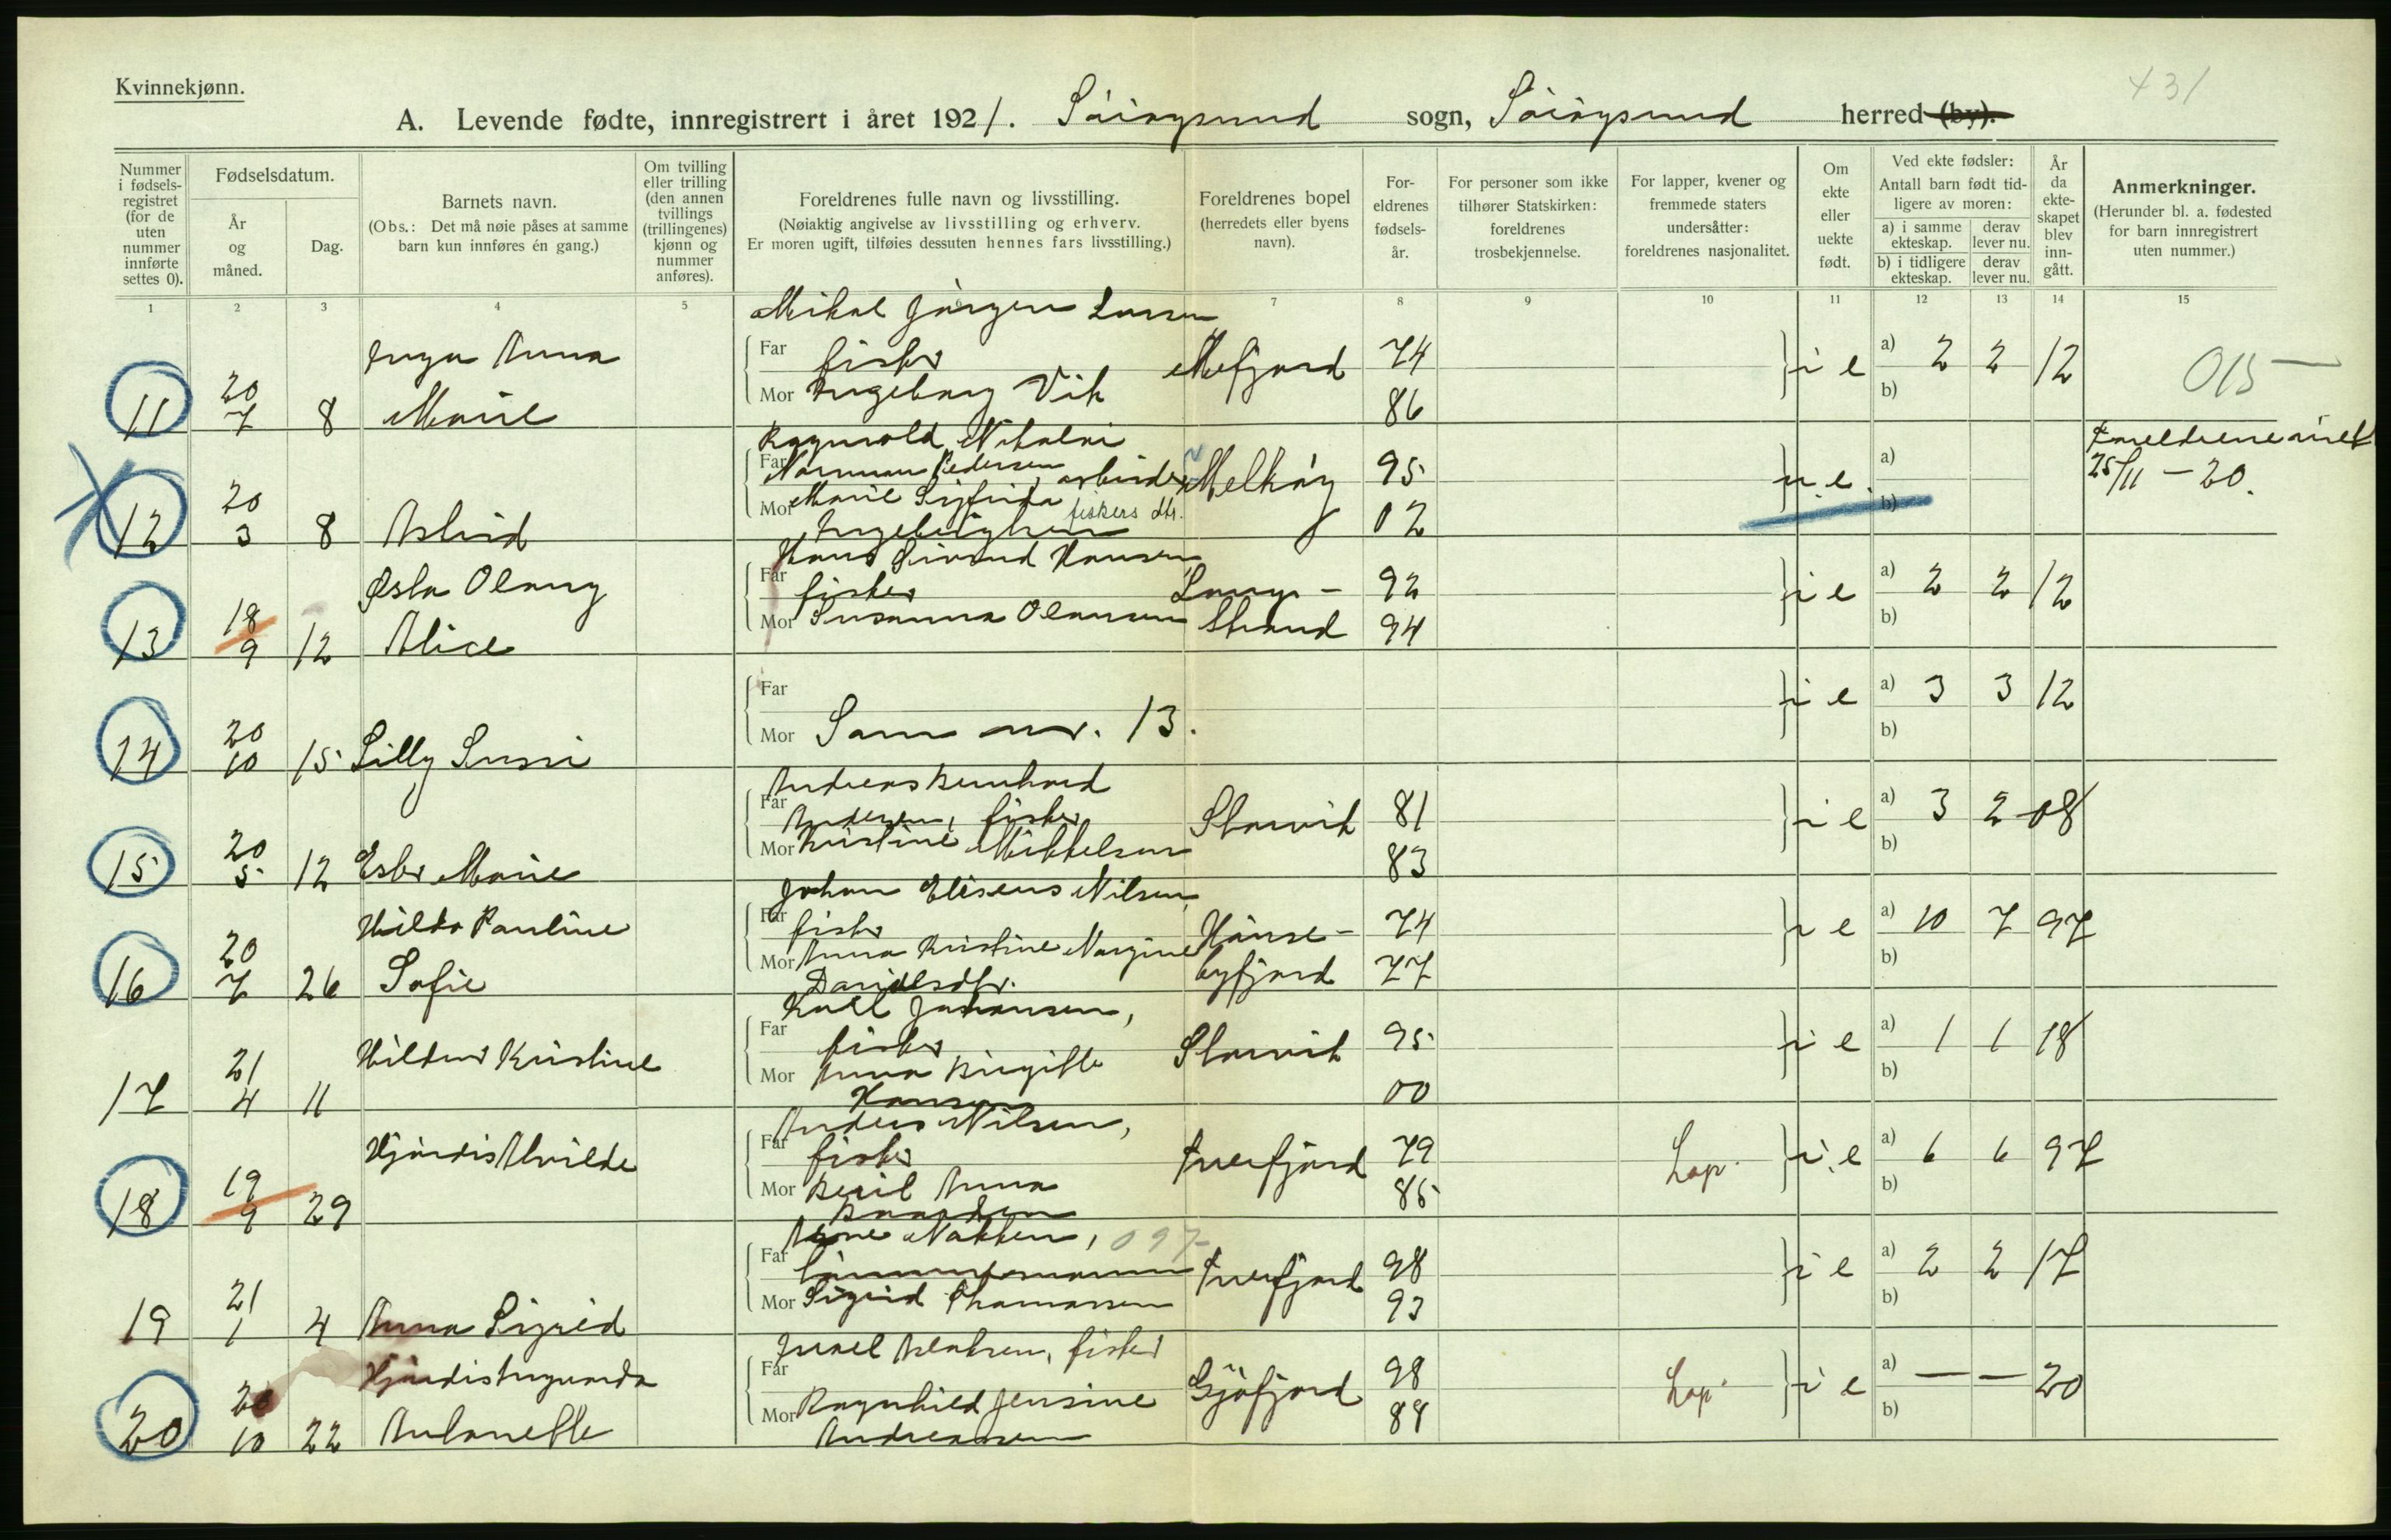 Kvinnekjønn.
431
A. Levende fødte, innregistrert i året 1921. Söröysund sogn, Söröysund herred (by).
Nummer i fødselsregistret (for de uten nummer innførte settes 0).
Fødselsdatum.
År og måned.
Dag.
Barnets navn.
(Obs.: Det må nøie påses at samme barn kun innføres én gang.)
Om tvilling eller trilling (den annen tvillings (trillingenes) kjønn og nummer anføres).
Foreldrenes fulle navn og livsstilling.
(Nøiaktig angivelse av livsstilling og erhverv.
Er moren ugift, tilføies dessuten hennes fars livsstilling.)
Foreldrenes bopel (herredets eller byens navn).
Foreldrenes fødselsår.
For personer som ikke tilhører Statskirken: foreldrenes trosbekjennelse.
For lapper, kvener og fremmede staters undersåtter: foreldrenes nasjonalitet.
Om ekte eller uekte født.
Ved ekte fødsler:
Antall barn født tidligere av moren:
a) i samme ekteskap.
derav lever nu.
b) i tidligere ekteskap.
derav lever nu.
År da ekteskapet blev inngått.
Anmerkninger.
(Herunder bl. a. fødested for barn innregistrert uten nummer.)
1 2 3 4 5 7 8 9 10 11 12 13 14 15
Mikal Jörgen Larsen
Inga Anna Far fisker Mefjord 74 i e a) 2 2 12 015
11 20/7 8 Marie Mor Ingeborg Vik 86 b)
Ragnvald Nikolai Foreldrene viet
Far Norman Pedersen, arbeider Melköy 95 u e. a) 25/11 - 20.
12 20/3 8 Astrid Mor Marie Sigfrida fiskers dtr. 02 b)
Ingebrigtsen
Hans Sivund Hansen,
Åsta Olaug Far fisker Langstrand 92 i e a) 2 2 12
13 18/9 12 Alice Mor Susanna Olausen 94 b)
Far i e a) 3 3 12
14 20/10 15 Lilly Sussi Mor Sam nr. 13. b)
Andreas Bernhard
Far Andersen, fisker Storvik 81 i e a) 3 2 08
15 20/5 12 Ester Marie Mor Kristine Mikkelsen 83 b)
Johan Eliseus Nilsen,
Hilda Pauline Far fisker Hönsebyfjord 74 e a) 10 7 97
16 20/7 26 Sofie Mor Anna Kristine Nargine 77 b)
Danielsdtr.
Karl Johansen,
Hildur Kristine Far fisker Storvik 95 i e a) 1 1 18
17 21/4 11 Mor Anna Birgitte 00 b)
Hansen
Anders Nilsen,
Hjördis Alvilde Far fisker Tverfjord 79 Lap. i e a) 6 6 97
18 19/9 29 Mor Beril Anna 85 b)
Arne Nakken, 097
Far Tverfjord 98 i e a) 2 2 17
19 21/1 4 Anna Sigrid Mor Sigrid Thomassen 93 b)
Israel Aslaksen, fisker
Hjördis Ingvarda Far Gjöfjord 98 Lap. i e a) — — 20
20 20/10 22 Antonette Mor Ragnhild Jensine 89 b)
Andreassen